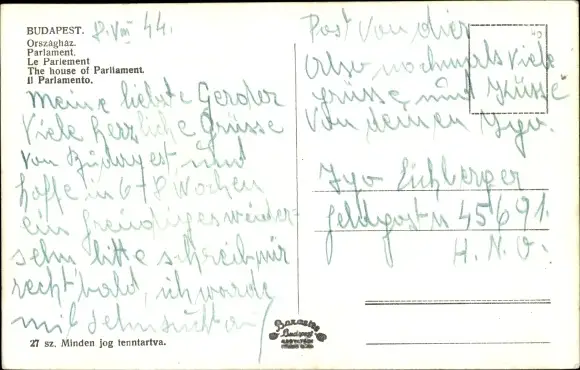 BUDAPEST. 8. VIII 44.
Országház.
Parlament.
Le Parlement
The house of Parliament.
Il Parlamento.
Meine liebste Gerda
Viele herzliche Grüsse
von Budapest, und
hoffe in 6-8 Wochen
ein freudiges wieder-
sehn bitte schreib mir
recht bald, ich warde
mit Sehnsucht
27 sz. Minden jog fenntartva.
Post von dier
also nochmals viele
grüsse und Küsse
von deinen Ivo.
Ivo Eichberger
feldpost n 45691.
H.N.O.
Barasits
Budapest